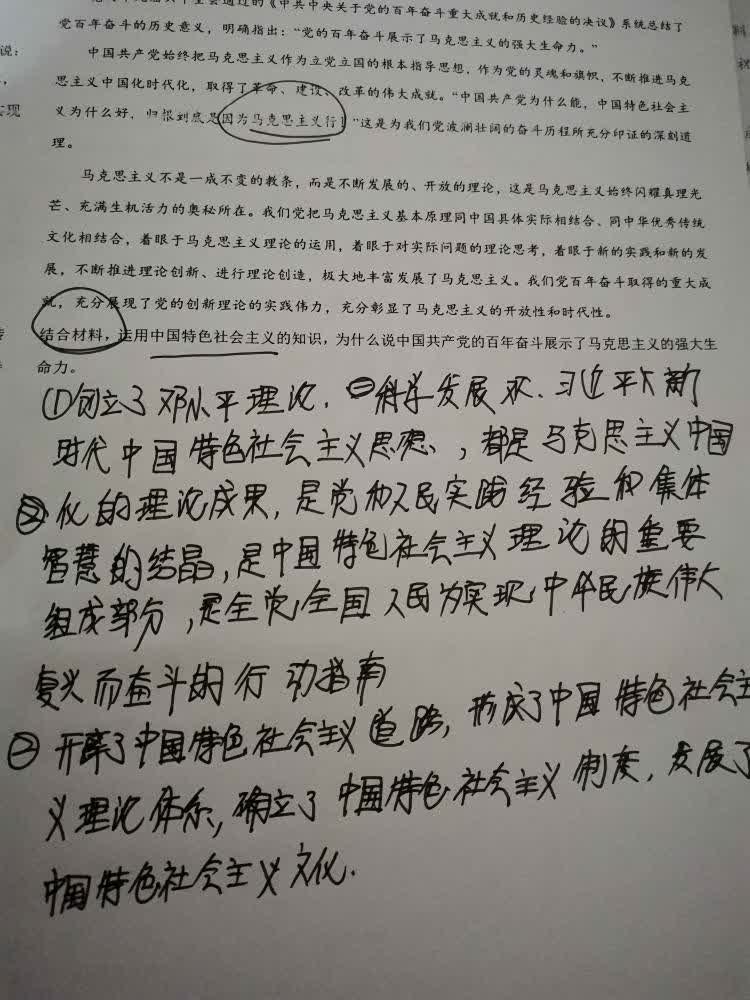 通过的《中共中央关于党的百年奋斗重大成就和历史经验的决议》系统总结了
党百年奋斗的历史意义，明确指出：“党的百年奋斗展示了马克思主义的强大生命力。”
说：
中国共产党始终把马克思主义作为立党立国的根本指导思想，作为党的灵魂和旗帜，不断推进马克
思主义中国化时代化，取得了革命、建设、改革的伟大成就。“中国共产党为什么能，中国特色社会主
实现
义为什么好，归根到底是因为马克思主义行！”这是为我们党波澜壮阔的奋斗历程所充分印证的深刻道
理。
马克思主义不是一成不变的教条，而是不断发展的、开放的理论，这是马克思主义始终闪耀真理光
芒、充满生机活力的奥秘所在。我们党把马克思主义基本原理同中国具体实际相结合、同中华优秀传统
文化相结合，着眼于马克思主义理论的运用，着眼于对实际问题的理论思考，着眼于新的实践和新的发
展，不断推进理论创新、进行理论创造，极大地丰富发展了马克思主义。我们党百年奋斗取得的重大成
就，充分展现了党的创新理论的实践伟力，充分彰显了马克思主义的开放性和时代性。
结合材料，运用中国特色社会主义的知识，为什么说中国共产党的百年奋斗展示了马克思主义的强大生
命力。
①创立了邓小平理论，科学发展观、习近平新
时代中国特色社会主义思想，都是马克思主义中国
化的理论成果，是党和人民实践经验和集体
智慧的结晶，是中国特色社会主义理论的重要
组成部分，是全党全国人民为实现中华民族伟大
复兴而奋斗的行动指南
㊁开辟了中国特色社会主义道路，形成了中国特色社会主
义理论体系，确立了中国特色社会主义制度，发展了
中国特色社会主义文化.